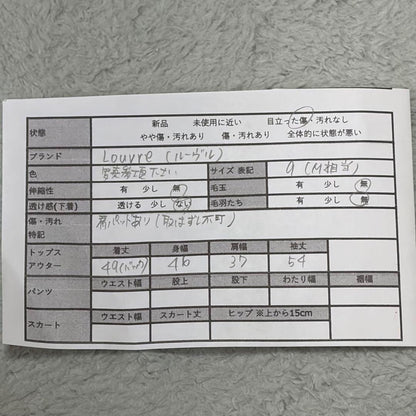 新品 未使用に近い 目立った傷・汚れなし
状態
やや傷・汚れあり 傷・汚れあり 全体的に状態が悪い
ブランド Louvre (ルーヴル)
色 写真参照下さい サイズ 表記 9 (M相当)
伸縮性 有 少し 無 毛玉 有 少し 無
透け感(下着) 透ける 少し ない 毛羽たち 有 少し 無
傷・汚れ 肩パットあり(取はずし不可)
特記
トップス 着丈 身幅 肩幅 袖丈
アウター 49 46 37 54
パンツ ウエスト幅 股上 股下 わたり幅 裾幅
スカート ウエスト幅 スカート丈 ヒップ ※上から15cm